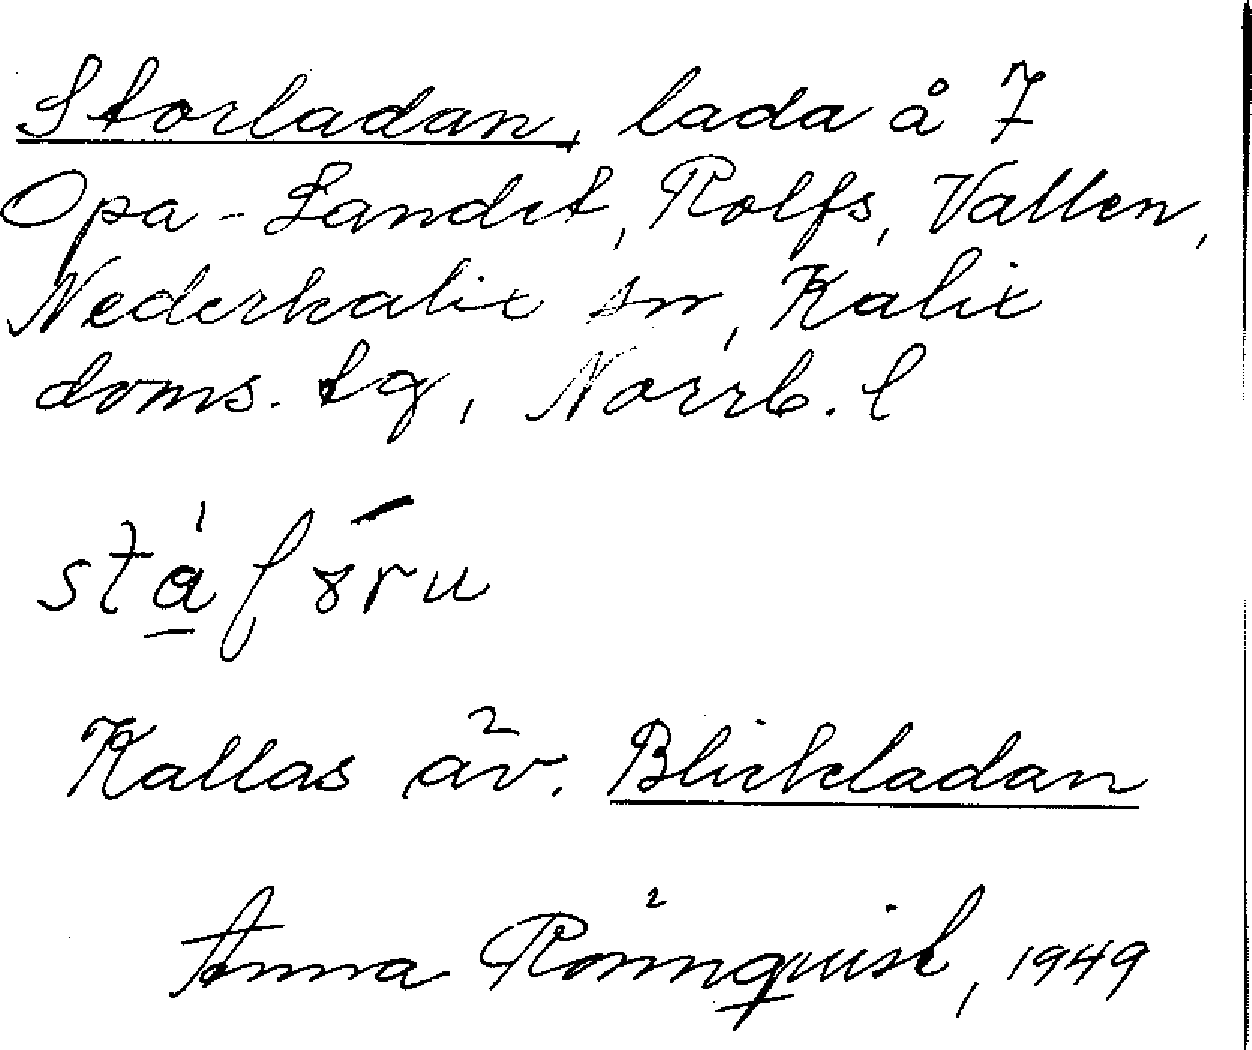 Storladan, lada å 7
Opa-Landet, Rolfs, Vallen,
Nederkalix sn, Kalix
doms. tg, Norrb. l
Kallas äv. Blickladan
Anna Rönnquist, 1949